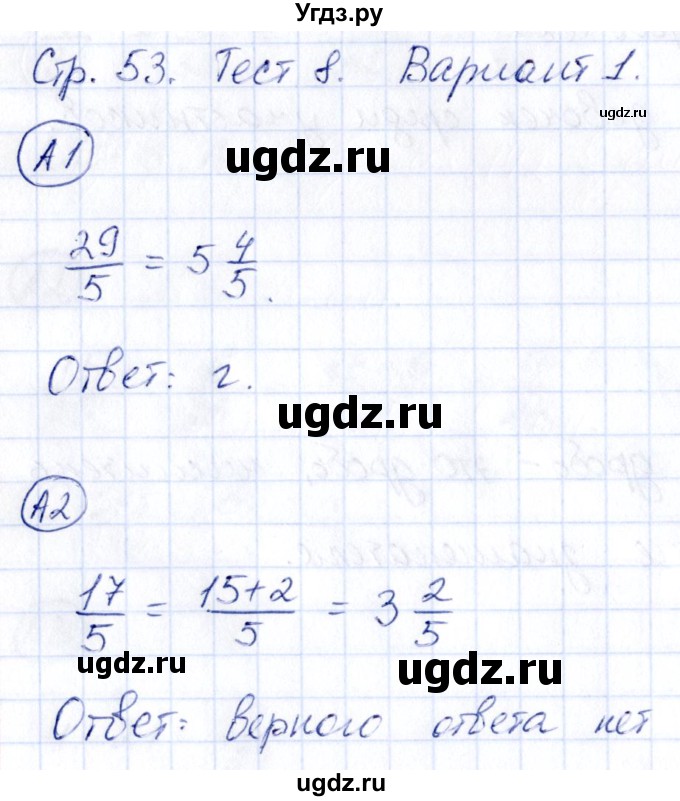 Угдз.ру
Стр. 53. Тест 8. Вариант 1.
ugdz.ru
А1
ugdz.ru
29/5 = 5 4/5.
Ответ: г.
ugdz.ru
А2
17/5 = 15+2/5 = 3 2/5
ugdz.ru
ugdz.ru
Ответ: верного ответа нет
ugdz.ru